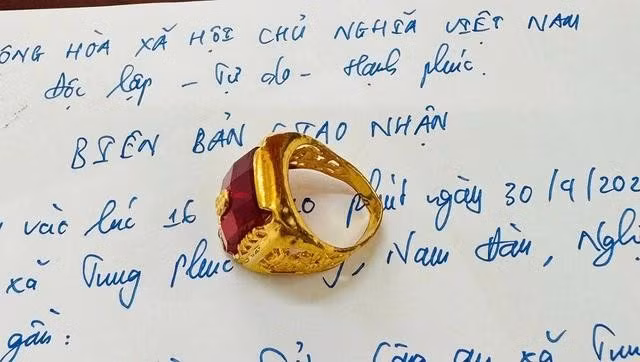 ÔNG HÒA XÃ HỘI CHỦ NGHĨA VIỆT NAM
Độc lập - Tự do - Hạnh phúc.
BIÊN BẢN GIAO NHẬN
vào lúc 16 phút ngày 30/9/202
xã Trung Phúc Nam Đàn, Ngh
gồm:
Công an xã Trun